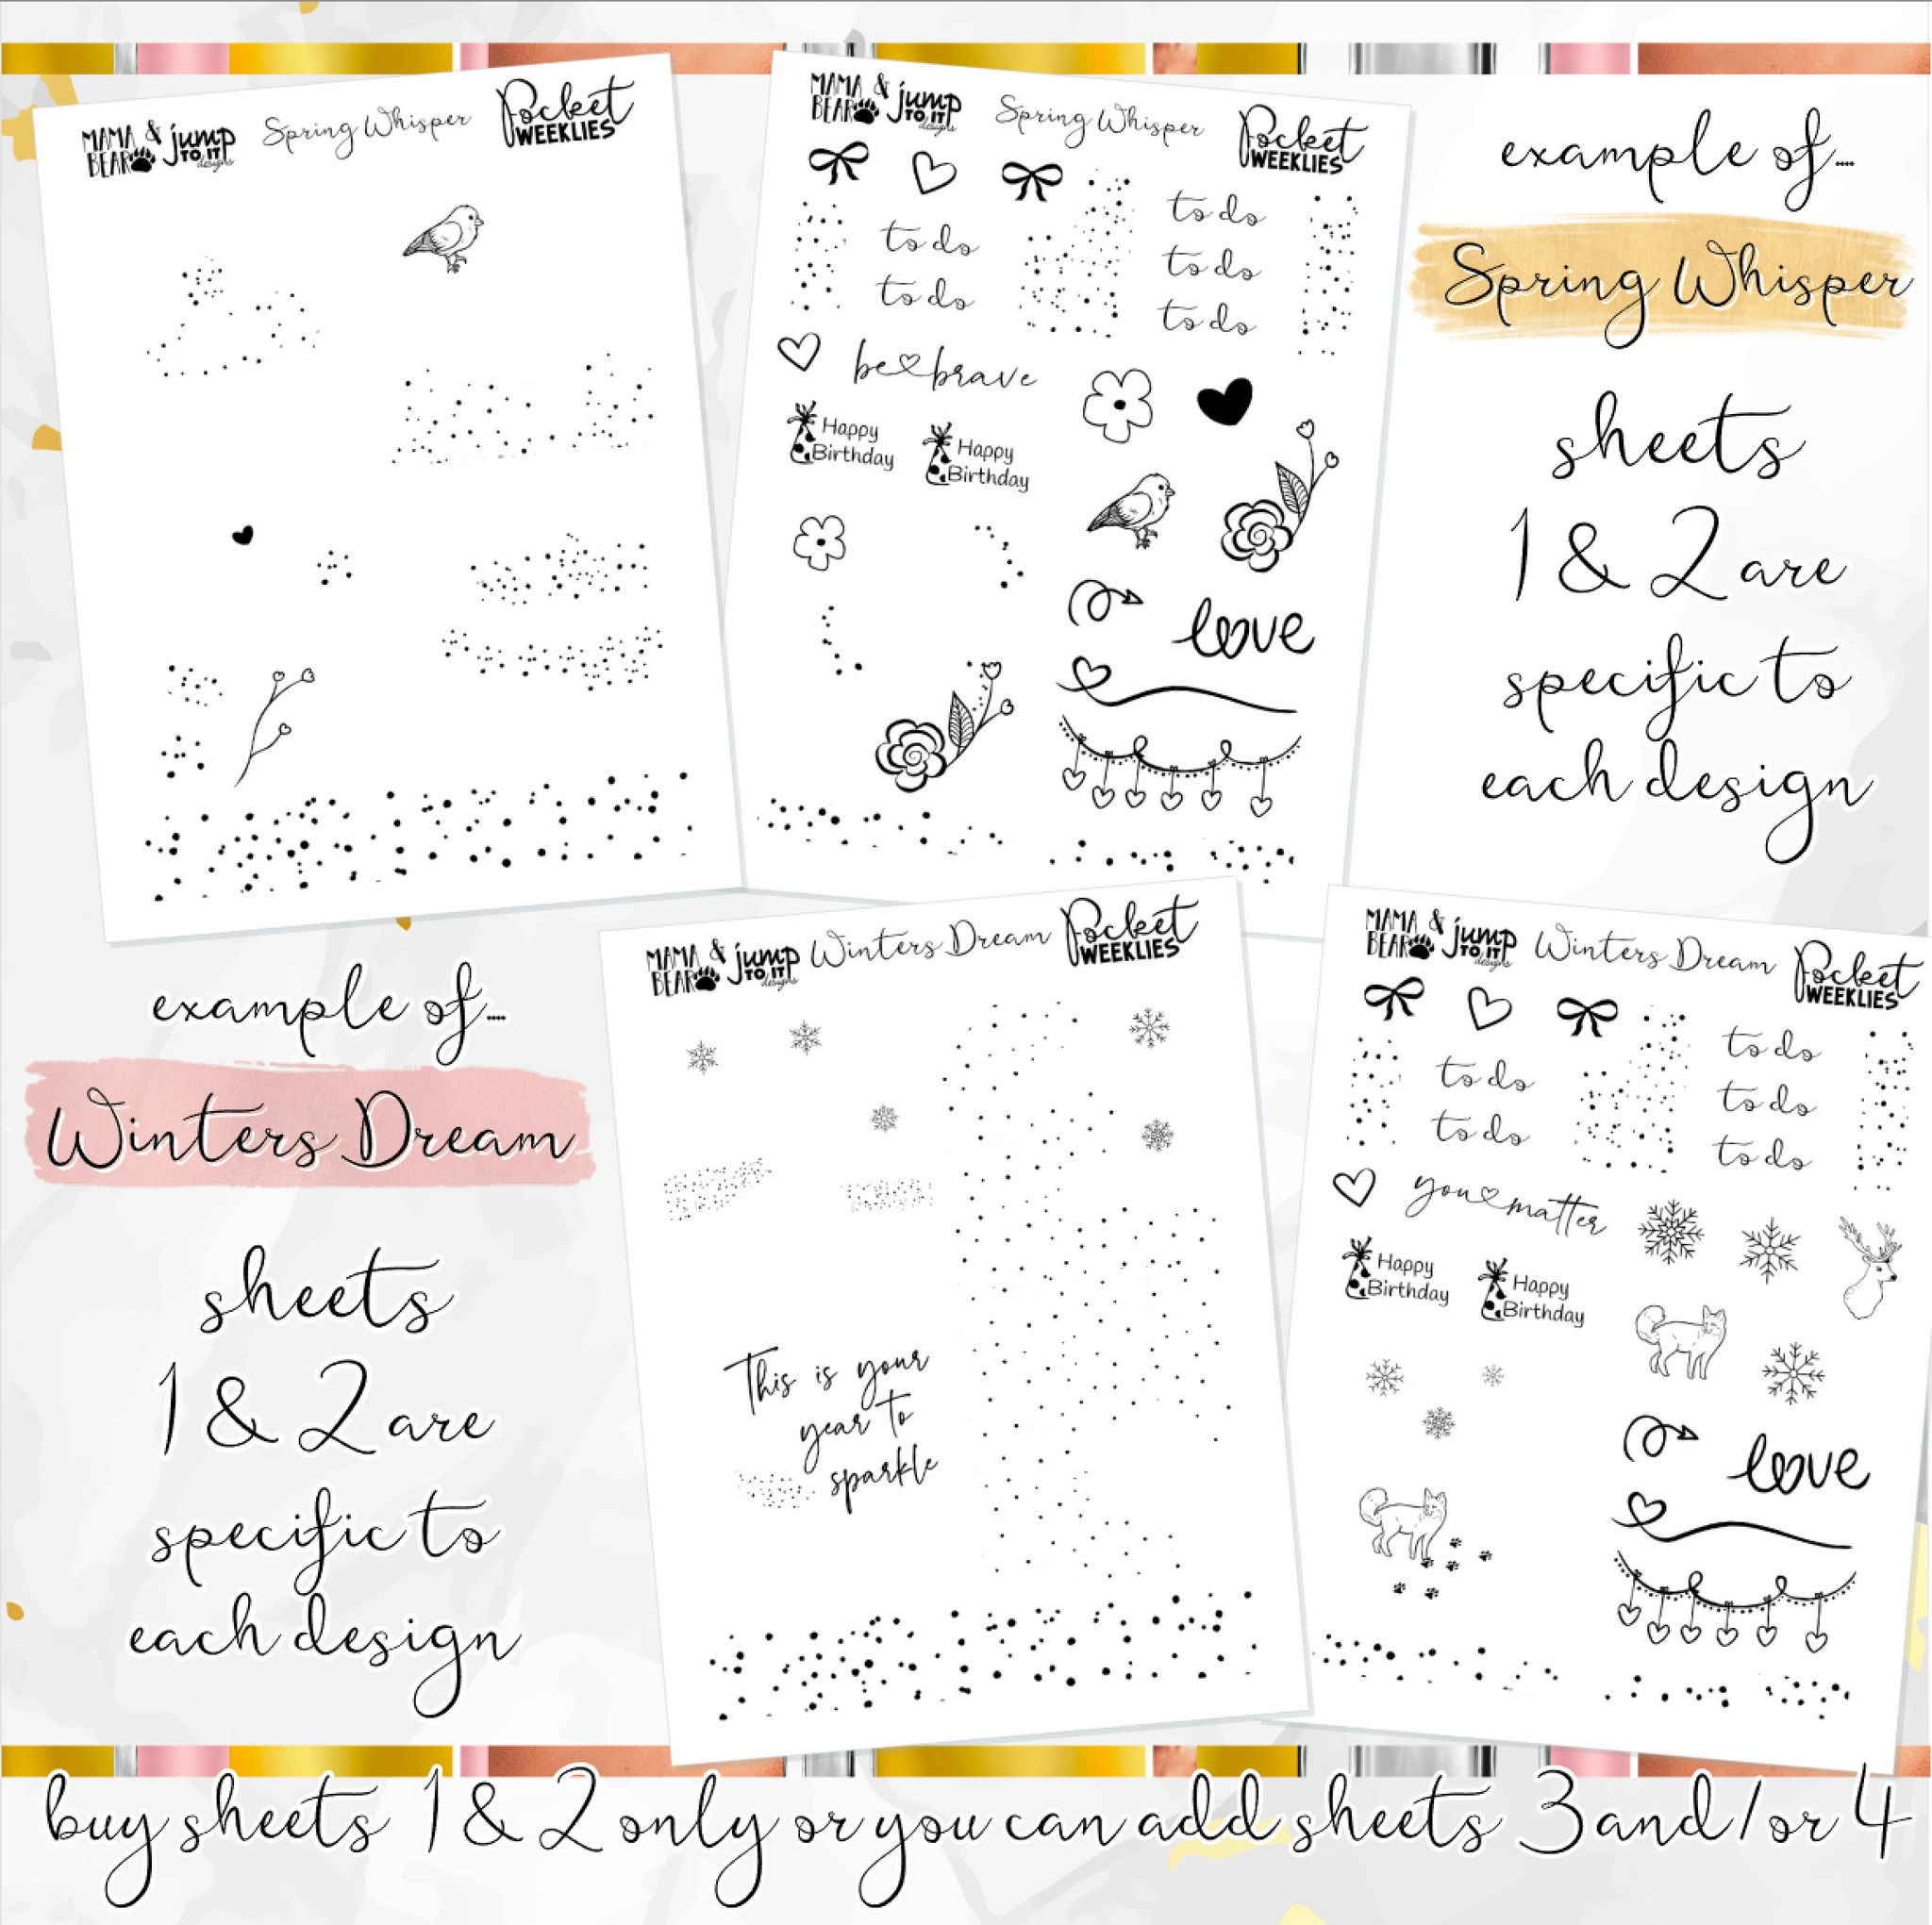 MAMA & jump
BEAR TO IT
designs
Spring Whisper
Pocket
WEEKLIES
MAMA & jump
BEAR TO IT
designs
Spring Whisper
Pocket
WEEKLIES
to do
to do
to do
to do
to do
be brave
Happy
Birthday
Happy
Birthday
love
example of....
Spring Whisper
sheets
1 & 2 are
specific to
each design
example of....
Winters Dream
sheets
1 & 2 are
specific to
each design
MAMA & jump
BEAR TO IT
designs
Winters Dream
Pocket
WEEKLIES
This is your
year to
sparkle
MAMA & jump
BEAR TO IT
designs
Winters Dream
Pocket
WEEKLIES
to do
to do
to do
to do
to do
you matter
Happy
Birthday
Happy
Birthday
love
buy sheets 1 & 2 only or you can add sheets 3 and/or 4